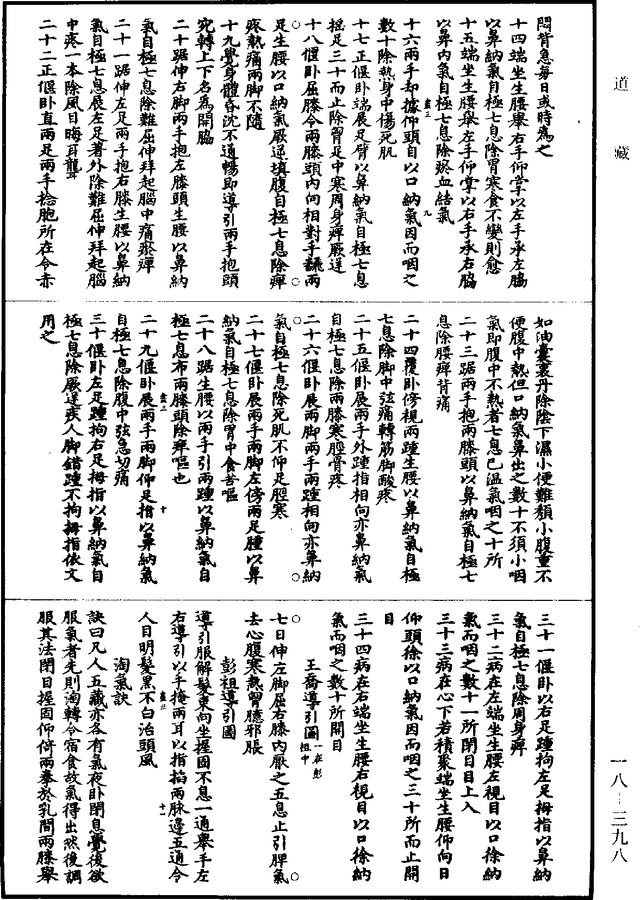 道藏
悶背急每日或時為之
十四端坐生腰舉右手仰掌以左手承左脇
以鼻納氣自極七息除胃寒食不變則愈
十五端坐生腰舉左手仰掌以右手承右脇
以鼻内氣自極七息除瘀血結氣
十六兩手却據仰頭自以口納氣因而咽之
數十除熱身中傷死肌
十七正偃卧端展足臂以鼻納氣自極七息
摇足三十而止除胷足中寒周身痺厥逆
十八偃卧屈膝令兩膝頭内向相對手翻兩
足生腰以口納氣厥逆填腹自極七息除痺
疼熱痛兩脚不隨
十九覺身體昏沈不通暢即導引兩手抱頭
宛轉上下名為開脇
二十踞伸右脚兩手抱左膝頭生腰以鼻納
氣自極七息除難屈伸拜起腦中痛瘀痺
二十一踞伸左足兩手抱右膝生腰以鼻納
氣自極七息展左足著外除難屈伸拜起腦
中疼一本除風目晦耳聾
二十二正偃卧直兩足兩手捻胞所在令赤
如油囊裹丹除陰下濕小便難頹小腹重不
便腹中熱但口納氣鼻出之數十不須小咽
氣即腹中不熱者七息已温氣咽之十所
二十三踞兩手抱兩膝頭以鼻納氣自極七
息除腰痺背痛
二十四覆卧傍視兩踵生腰以鼻納氣自極
七息除脚中弦痛轉筋脚酸疼
二十五偃卧展兩手外踵指相向亦鼻納氣
自極七息除兩膝寒脛骨疼
二十六偃卧展兩脚兩手兩踵相向亦鼻納
氣自極七息除死肌不仰足脛寒
二十七偃卧展兩手兩脚左傍兩足踵以鼻
納氣自極七息除胃中食苦嘔
二十八踞生腰以兩手引兩踵以鼻納氣自
極七息布兩膝頭除痺嘔也
二十九偃卧展兩手兩脚仰足指以鼻納氣
自極七息除腹中弦急切痛
三十偃卧左足踵拘右足拇指以鼻納氣自
極七息除厥逆疾人脚錯踵不拘拇指依文
用之
三十一偃卧以右足踵拘左足拇指以鼻納
氣自極七息除周身痺
三十二病在左端坐生腰左視目以口徐納
氣而咽之數十一所閉目目上入
三十三病在心下若積聚端坐生腰仰向日
仰頭徐以口納氣因而咽之三十所而止開
目
三十四病在右端坐生腰右視目以口徐納
氣而咽之數十所開目
王喬導引圖一在彭祖中
七日伸左脚屈右膝内厭之五息止引脾氣
去心腹寒熱胷臆邪脹
彭祖導引圖
導引服解髮東向坐握固不息一通舉手左
右導引以手掩兩耳以指掐兩脉邊五通令
人目明髮黑不白治頭風
淘氣訣
訣曰凡人五藏亦各有氣夜卧閉息覺後欲
服氣者先則淘轉令宿食故氣得出然後調
服其法閉目握固仰倚兩拳於乳間兩膝舉
一八—三九八